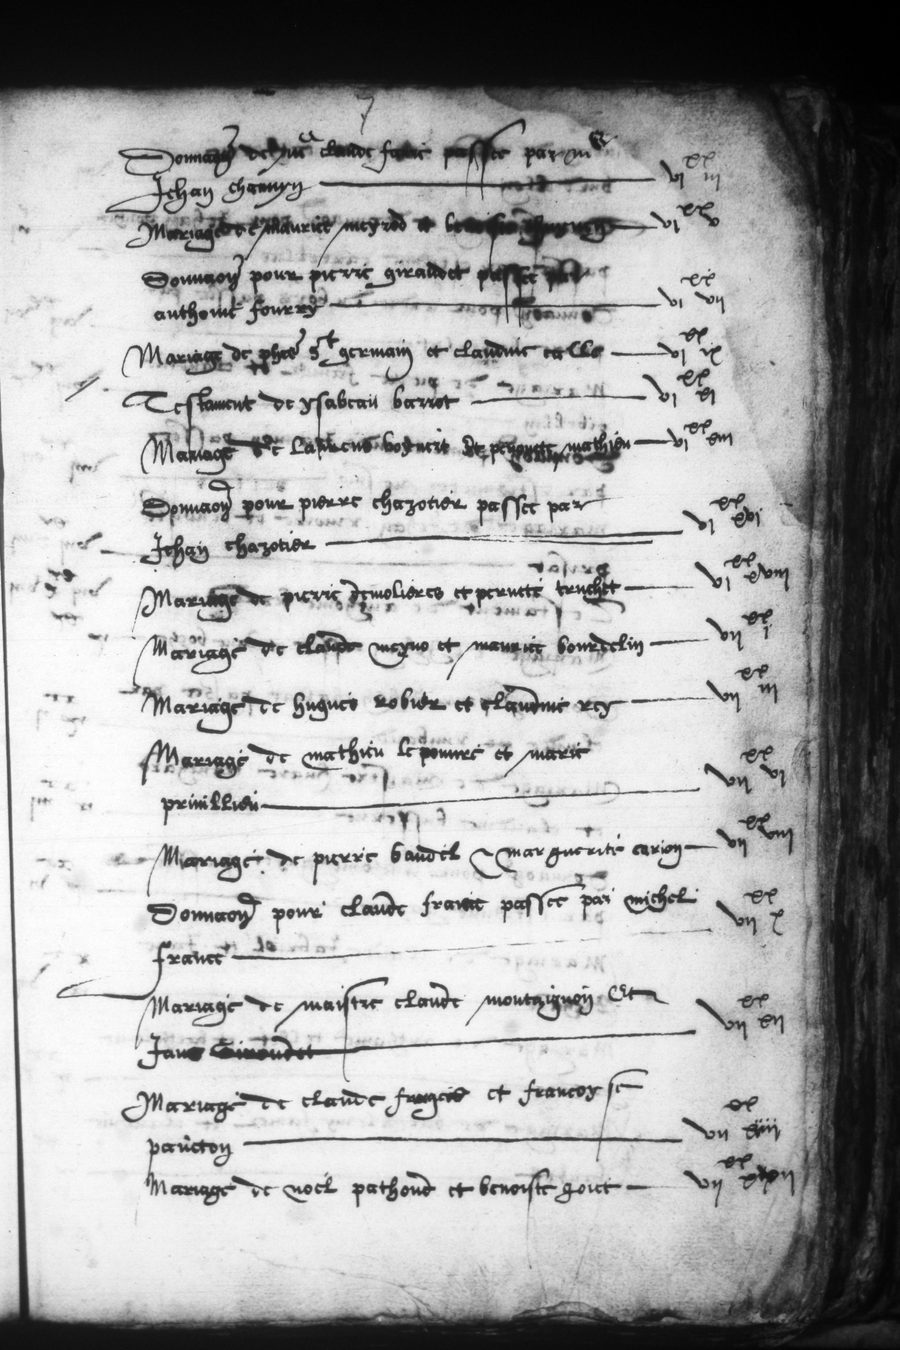 7
Donnaon de claude passee par me
Jehan chauvyn vi xx iii
Mariage de maurice meyrod et vi xx v
Donnaon pour pierre giraudet passee par
anthoine fourry vi xx vii
Mariage de phee st germain et claudine vi xx ix
Testament de ysabeau barrot vi xx xi
Mariage de Laurens et mathieu vi xx xiii
Donnaon pour pierre chazotier passee par
Jehan chazotier vi xx xvi
Mariage de pierre demolieres et perrette truchet vi xx xviii
Mariage de claude meyno et maurice bourdelin vii xx i
Mariage de hugues robier et claudine rey vii xx iii
Mariage de mathieu lepouvre et marie
privillieu vii xx vi
Mariage de pierre baudel & marguerite carion vii xx viii
Donnaon pour claude france passee par michel
france vii xx x
Mariage de maistre claude montaignon Et
Jane Giroudet vii xx xii
Mariage de claude frances et francoyse
paucton vii xx xiiii
Mariage de noel pathoud et benoiste goiet vii xx xvii